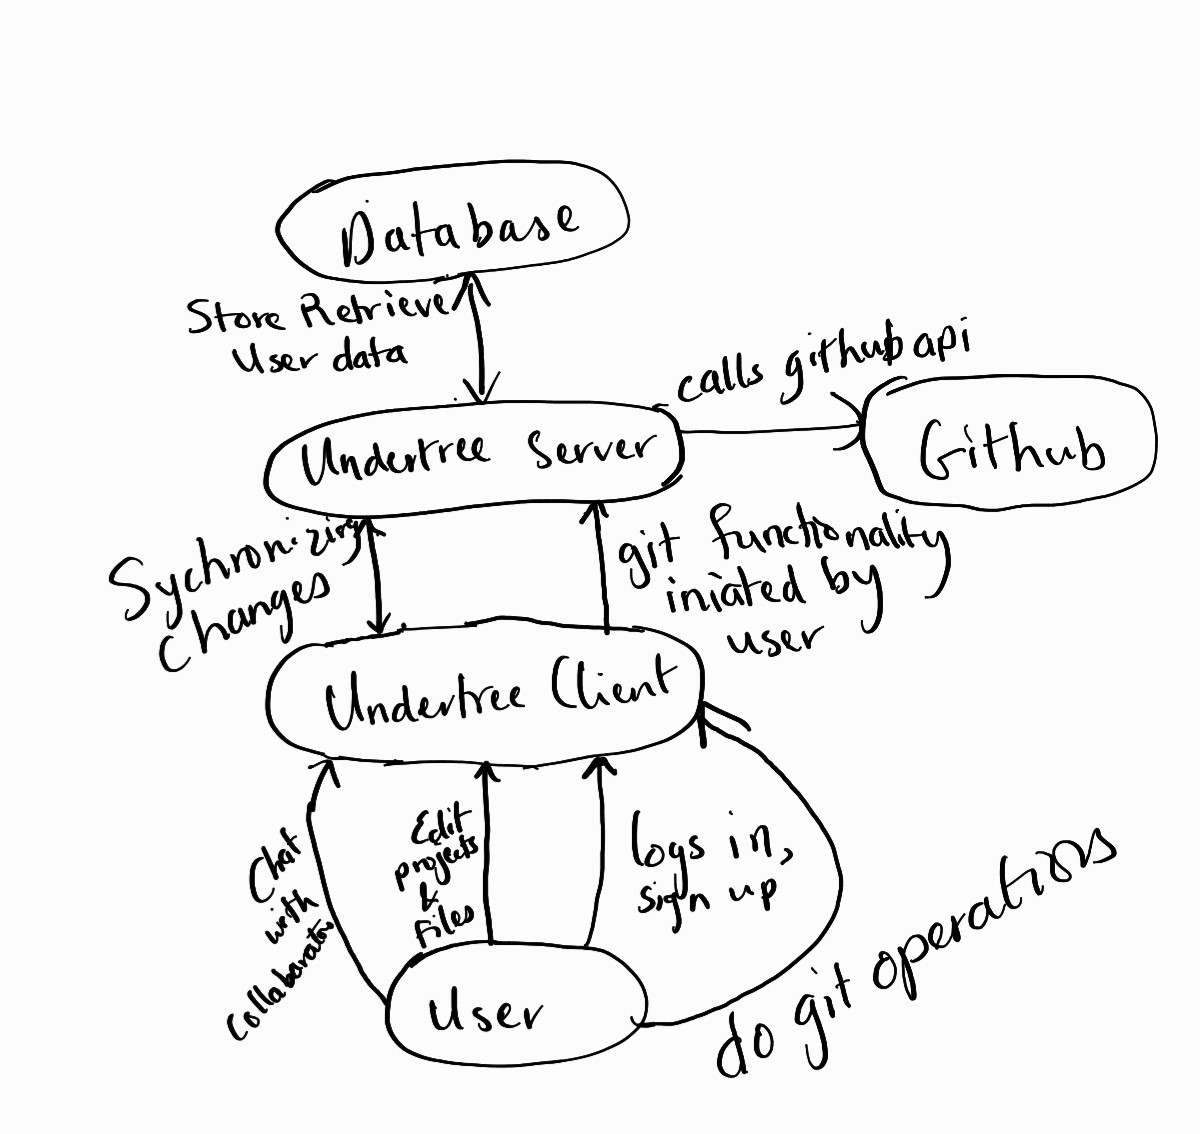 Database
Store Retrieve
User data
calls github api
Undertree Server
Github
Sychronizing
changes
git functionality
iniated by
user
Undertree Client
Chat
with
Collaborators
Edit
projects
&
Files
logs in,
sign up
User
do git operations